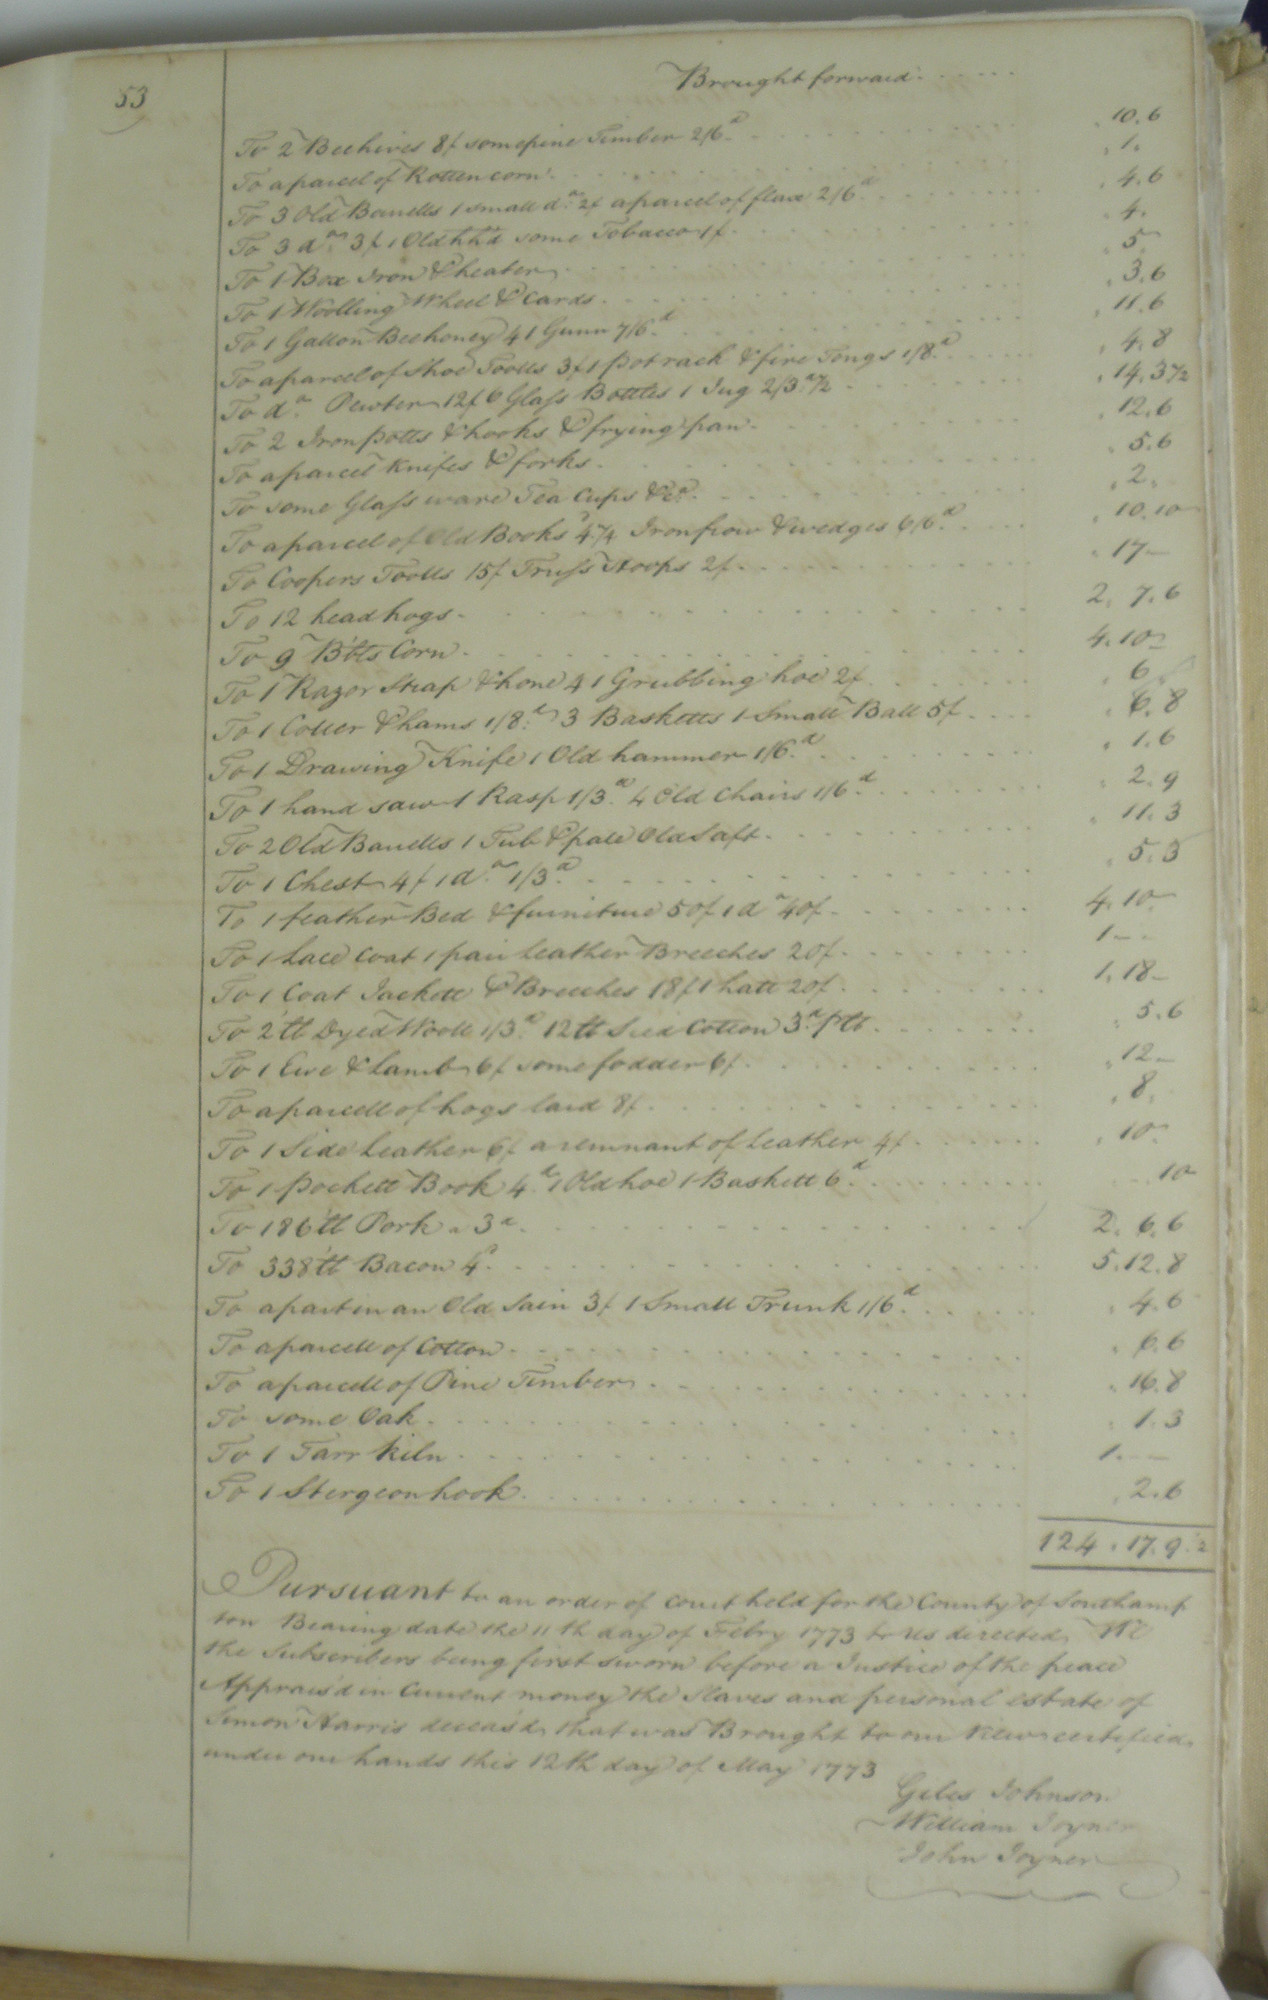 53
Brought forward
To 2 Beehives 8/ some pine Timber 2/6d . 10. 6
To a parcel of Rotten corn . 1.
To 3 Old Barrells 1 small do 2/ a parcel of flax 2/6d . 4. 6
To 3 do 3/ 1 Old hhd some Tobacco 1/ . 4.
To 1 Box Iron & heater . 5
To 1 Woolling Wheel & Cards . 3. 6
To 1 Gallon Beehoney 4 1 Gunn 7/6d . 11. 6
To a parcel of Shoe Toolls 3/ 1 pot rack & fire Tongs 1/8d . 4. 8
To do Pewter 12/ 6 Glass Bottles 1 Jug 2/3d½ . 14. 3½
To 2 Iron potts & hooks & frying pan . 12. 6
To a parcel Knifes & forks . 5. 6
To some Glass ware Tea Cups &ca . 2.
To a parcel of Old Books 4/4 Iron frow & wedges 6/6d . 10. 10
To Coopers Toolls 15/ Truss Hoops 2/ . 17 –
To 12 head hogs 2. 7. 6
To 9 Bbls Corn 4. 10 –
To 1 Razor Strap & hone 4 1 Grubbing hoe 2/ . 6
To 1 Coller & hams 1/8d 3 Basketts 1 Small Ball 5/ . 6. 8
To 1 Drawing Knife 1 Old hammer 1/6d . 1. 6
To 1 hand saw 1 Rasp 1/3d 4 Old Chairs 1/6d . 2. 9
To 2 Old Barrells 1 Tub & pale Old Salt . 11. 3
To 1 Chest 4/ 1 do 1/3d . 5. 3
To 1 feather Bed & furniture 50/ 1 do 40/ 4. 10
To 1 Lace Coat 1 pair Leather Breeches 20/ 1 – –
To 1 Coat Jackett & Breeches 18/ 1 hatt 20/ 1. 18 –
To 2 lb Dyed Wooll 1/3d 12 lb Seed Cotton 3d p lb . 5. 6
To 1 Ewe & Lamb 6/ some fodder 6/ . 12 –
To a parcell of hogs lard 8/ . 8.
To 1 Side Leather 6/ a remnant of Leather 4/ . 10 –
To 1 pockett Book 4d 1 Old hoe 1 Baskett 6d . 10
To 186 lb Pork a 3d 2. 6. 6
To 338 lb Bacon 4d 5. 12. 8
To a part in an Old Sain 3/ 1 Small Trunk 1/6d . 4. 6
To a parcell of Cotton . 6. 6
To a parcell of Pine Timber . 16. 8
To some Oak . 1. 3
To 1 Tarr kiln 1. – –
To 1 Stergeon hook . 2. 6
124. 17. 9½
Pursuant to an order of court held for the County of Southamp
ton Bearing date the 11th day of Febry 1773 to us directed We
the Subscribers being first sworn before a Justice of the peace
Apprais'd in Current money the Slaves and personal estate of
Simon Harris deceas'd that was Brought to our View certified
under our hands this 12th day of May 1773
Giles Johnson
William Joyner
John Joyner